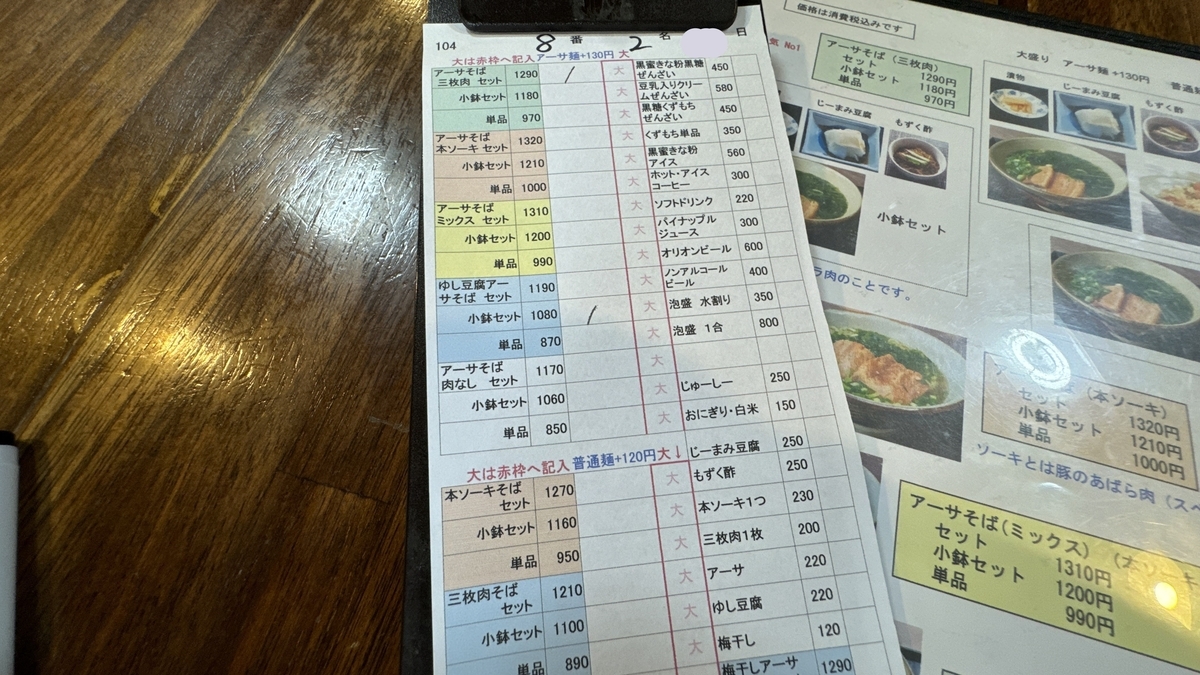 104
8 番 2 名 日
大は赤枠へ記入 アーサ麺+130円 大
アーサそば
三枚肉 セット 1290 / 大
小鉢セット 1180 大
単品 970 大
アーサそば
本ソーキ セット 1320 大
小鉢セット 1210 大
単品 1000 大
アーサそば
ミックス セット 1310 大
小鉢セット 1200 大
単品 990 大
ゆし豆腐アー
サそば セット 1190 大
小鉢セット 1080 / 大
単品 870 大
アーサそば
肉なし セット 1170 大
小鉢セット 1060 大
単品 850 大
大は赤枠へ記入 普通麺+120円 大↓
本ソーキそば
セット 1270 大
小鉢セット 1160 大
単品 950 大
三枚肉そば
セット 1210 大
小鉢セット 1100 大
単品 890 大
黒蜜きな粉黒糖
ぜんざい 450
豆乳入りクリー
ムぜんざい 580
黒糖くずもち
ぜんざい 450
くずもち単品 350
黒蜜きな粉
アイス 560
ホット・アイス
コーヒー 300
ソフトドリンク 220
パイナップル
ジュース 300
オリオンビール 600
ノンアルコール
ビール 400
泡盛 水割り 350
泡盛 1合 800
じゅーしー 250
おにぎり・白米 150
じーまみ豆腐 250
もずく酢 250
本ソーキ1つ 230
三枚肉1枚 200
アーサ 220
ゆし豆腐 220
梅干し 120
梅干しアーサ 1290
価格は消費税込みです
気 No1
アーサそば（三枚肉）
セット 1290円
小鉢セット 1180円
単品 970円
じーまみ豆腐
もずく酢
小鉢セット
ラ肉のことです。
大盛り アーサ麺 +130円
普通麺
漬物
じーまみ豆腐
もずく酢
（本ソーキ）
セット 1320円
小鉢セット 1210円
単品 1000円
ソーキとは豚のあばら肉（スペ
アーサそば（ミックス）
セット 1310円
小鉢セット 1200円
単品 990円